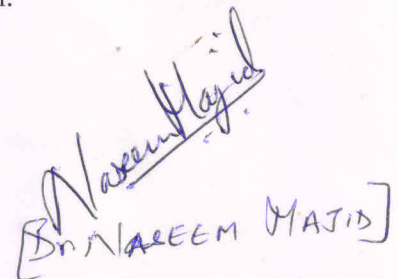 Naseem Majid
[Dr. NASEEM MAJID]